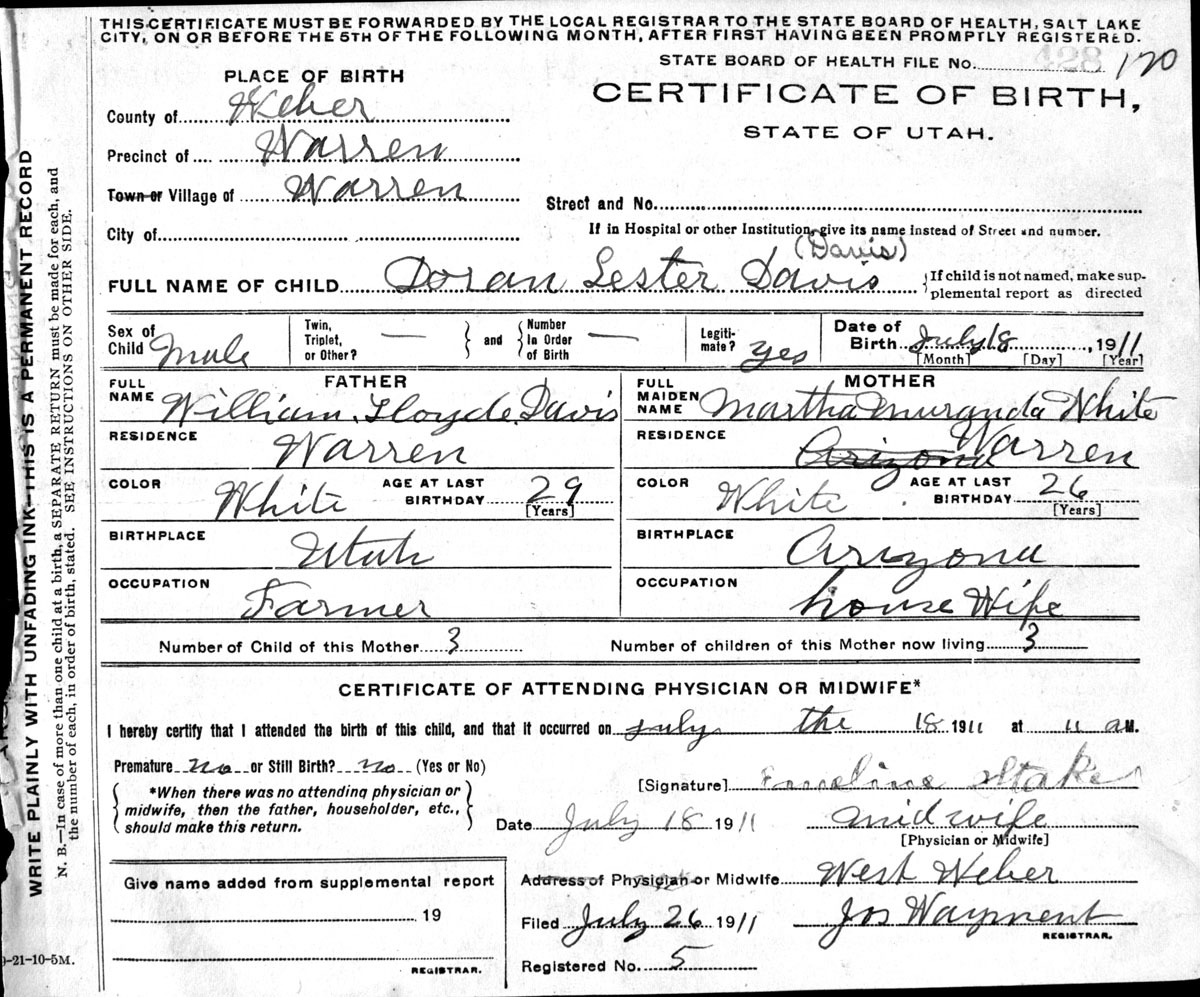 THIS CERTIFICATE MUST BE FORWARDED BY THE LOCAL REGISTRAR TO THE STATE BOARD OF HEALTH, SALT LAKE
CITY, ON OR BEFORE THE 5TH OF THE FOLLOWING MONTH, AFTER FIRST HAVING BEEN PROMPTLY REGISTERED.
STATE BOARD OF HEALTH FILE No. 428 170
PLACE OF BIRTH
CERTIFICATE OF BIRTH,
STATE OF UTAH.
County of Weber
Precinct of Warren
Town or Village of Warren
Street and No.
City of
If in Hospital or other Institution, give its name instead of Street and number.
(Davis)
FULL NAME OF CHILD Doran Lester Davis
If child is not named, make sup-
plemental report as directed
Sex of Child Male
Twin, Triplet, or Other? —
and
Number In Order of Birth —
Legiti-mate? yes
Date of Birth July 18, 1911
[Month] [Day] [Year]
FATHER
FULL NAME William Lloyde Davis
MOTHER
FULL MAIDEN NAME Martha Muranda White
RESIDENCE Warren
RESIDENCE Arizona Warren
COLOR White AGE AT LAST BIRTHDAY 29 [Years]
COLOR White AGE AT LAST BIRTHDAY 26 [Years]
BIRTHPLACE Utah
BIRTHPLACE Arizona
OCCUPATION Farmer
OCCUPATION house Wife
Number of Child of this Mother 3
Number of children of this Mother now living 3
CERTIFICATE OF ATTENDING PHYSICIAN OR MIDWIFE*
I hereby certify that I attended the birth of this child, and that it occurred on july the 18 1911 at 11 a M.
Premature no or Still Birth? no (Yes or No)
*When there was no attending physician or
midwife, then the father, householder, etc.,
should make this return.
[Signature] Stake
Date July 18 1911
midwife
[Physician or Midwife]
Address of Physician or Midwife West Weber
Filed July 26 1911 Jos Wayment
REGISTRAR.
Registered No. 5
Give name added from supplemental report
19
REGISTRAR.
9-21-10-5M.
WRITE PLAINLY WITH UNFADING INK—THIS IS A PERMANENT RECORD
N. B.—In case of more than one child at a birth, a SEPARATE RETURN must be made for each, and
the number of each, in order of birth, stated. SEE INSTRUCTIONS ON OTHER SIDE.